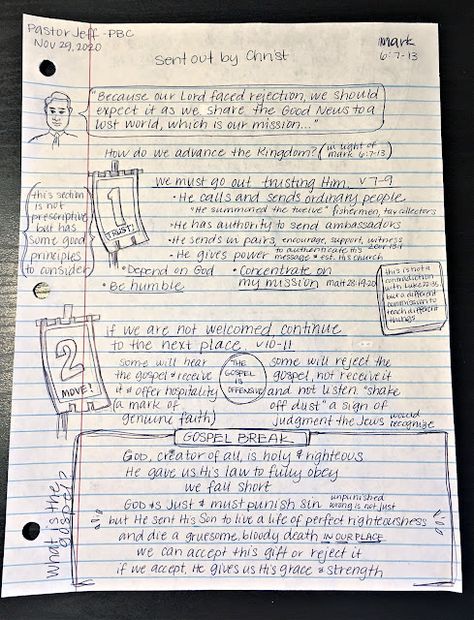 Pastor Jeff - PBC
Nov 29, 2020
Sent out by Christ
Mark
6:7-13
"Because our Lord faced rejection, we should
expect it as we share the Good News to a
lost world, which is our mission..."
How do we advance the Kingdom? (in light of
Mark 6:7-13)
this section
is not
prescriptive
but has
some good
principles
to consider
1
TRUST!
we must go out trusting Him. v7-9
• He calls and sends ordinary people
"He summoned the twelve" fishermen, tax collectors
• He has authority to send ambassadors
• He sends in pairs, encourage, support, witness
• He gives power to authenticate his
message & est. His church
• Depend on God
• Concentrate on
my mission Matt 28:19-20
• Be humble
this is not a
contradiction
with Luke 22:36
but a different
commission to
teach different
things
2
MOVE!
if we are not welcomed, continue
to the next place. v10-11
some will hear
the gospel & receive
it & offer hospitality
(a mark of
genuine faith)
THE
GOSPEL
IS
OFFENSIVE
some will reject the
gospel, not receive it
and not listen. "shake
off dust" a sign of
judgment the Jews would
recognize
GOSPEL BREAK
what is the
gospel?
God, creator of all, is holy & righteous
He gave us His law to fully obey
we fall short
God is Just & must punish sin unpunished
wrong is not just
but He sent His Son to live a life of perfect righteousness
and die a gruesome, bloody death IN OUR PLACE
we can accept this gift or reject it
if we accept, He gives us His grace & strength